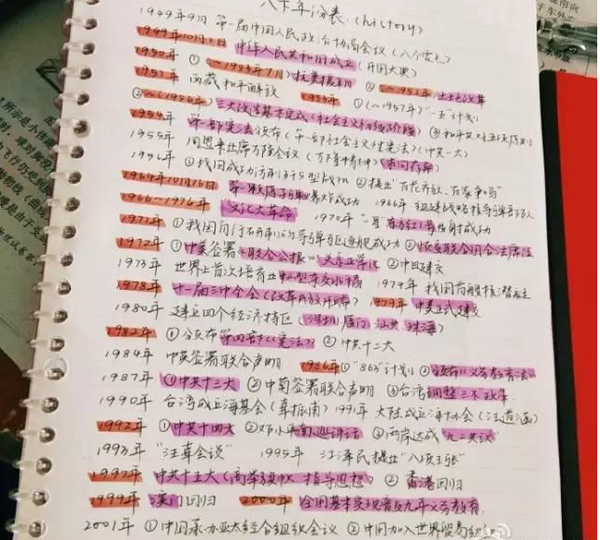 八下年份表 (history)
1949年9月 第一届中国人民政治协商会议
1949年10月1日 中华人民共和国成立(开国大典)
1950年 ①(~1953年7月)抗美援朝 ②(~1952年)土地改革
1951年 西藏和平解放 1953年 ①(~1957年)一五计划
②~(1956年)三大改造基本完成(社会主义初级阶段) ③和平共处五项原则
1954年 第一部宪法颁布(第一部社会主义性宪法)(一大)
1955年 周恩来出席万隆会议(万隆精神)(求同存异)
1956年 ①我国成功仿制 ②提出"百花齐放、百家争鸣"
1964年10月16日 第一颗原子弹爆炸成功 1966年 组建战略导弹部队
1966~1976年 文化大革命 1970年 "东方红1号"发射成功
1971年 ①我国自行研制的导弹驱逐舰成功 ②恢复联合国合法席位
1972年 ①中美签署《联合公报》 ②中日建交
1973年 世界上首次培育籼型杂交水稻 1974年 我国首艘核潜艇
1978年 十一届三中全会(改革开放开始) 1979年 中美正式建交
1980年 建立四个经济特区(深圳、厦门、汕头、珠海)
1982年 ①公布第四部《宪法》 ②中共十二大
1984年 中英签署联合声明 1986年 ①"863"计划 ②颁布《义务教育法》
1987年 ①中共十三大 ②中葡签署联合声明 ③台湾调整三不政策
1990年 台湾成立海基会(辜振甫) 1991年 大陆成立海协会(汪道涵)
1992年 ①中共十四大 ②邓小平南巡讲话 ③两岸达成"九二共识"
1993年 "汪辜会谈" 1995年 江泽民提出"八项主张"
1997年 中共十五大(高举旗帜、指导思想) ②香港回归
1999年 澳门回归 2000年 全国基本实现普及九年义务教育
2001年 ①中国承办亚太经合组织会议 ②中国加入世界贸易组织